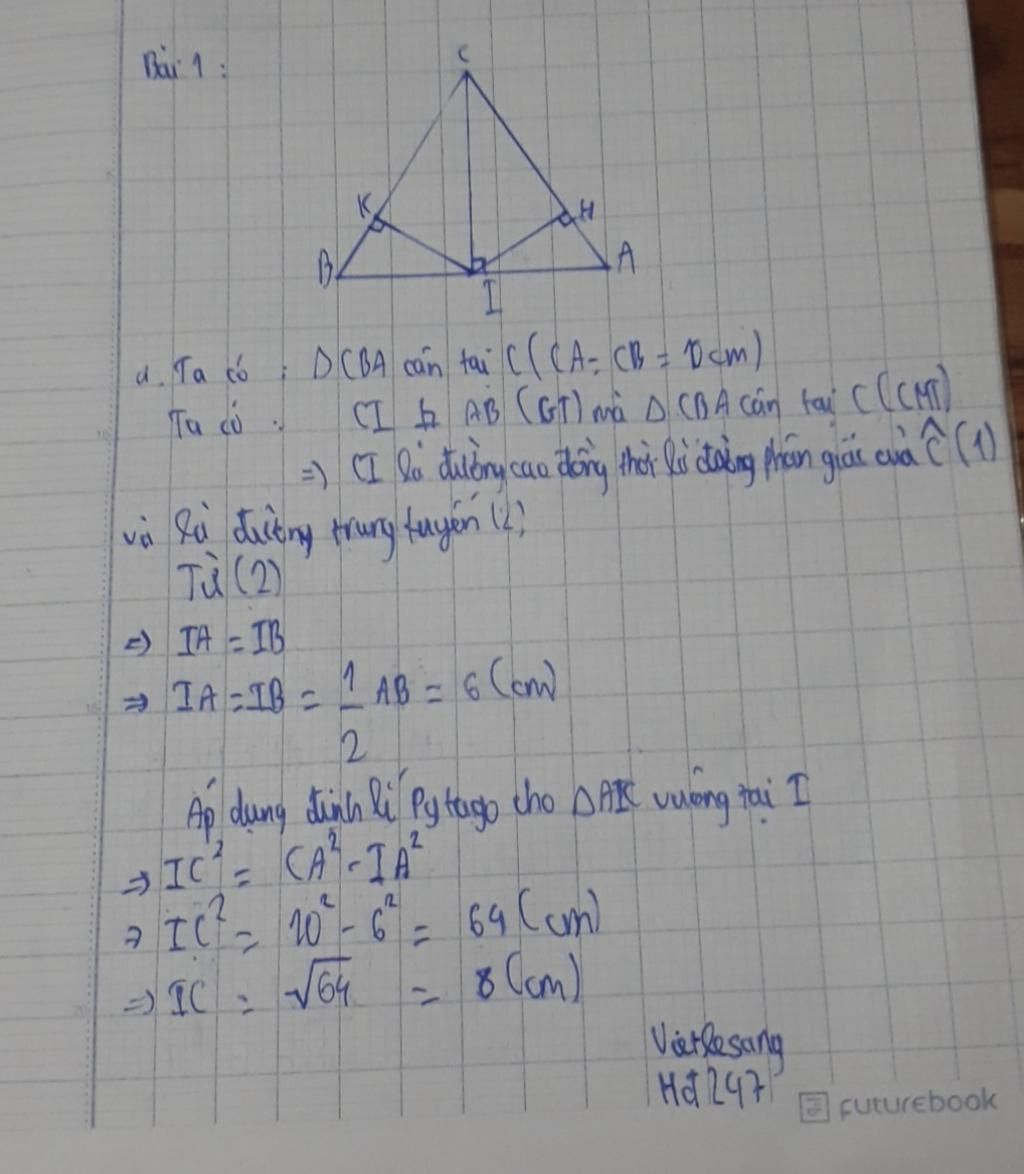 Bài 1 :
C
K
H
B
A
I
a. Ta có : ΔCBA cân tại C ( CA = CB = 10cm)
Ta có : CI ⊥ AB (GT) mà Δ CBA cân tại C (CMT)
=> CI là đường cao đồng thời là đường phân giác của Ĉ (1)
và là đường trung tuyến (2)
Từ (2)
=> IA = IB
=> IA = IB = 1/2 AB = 6 (cm)
Áp dụng định lí Pytago cho ΔAIC vuông tại I
=> IC² = CA² - IA²
=> IC² = 10² - 6² = 64 (cm)
=> IC = √64 = 8 (cm)
Vietlesang
Hd 247
futurebook